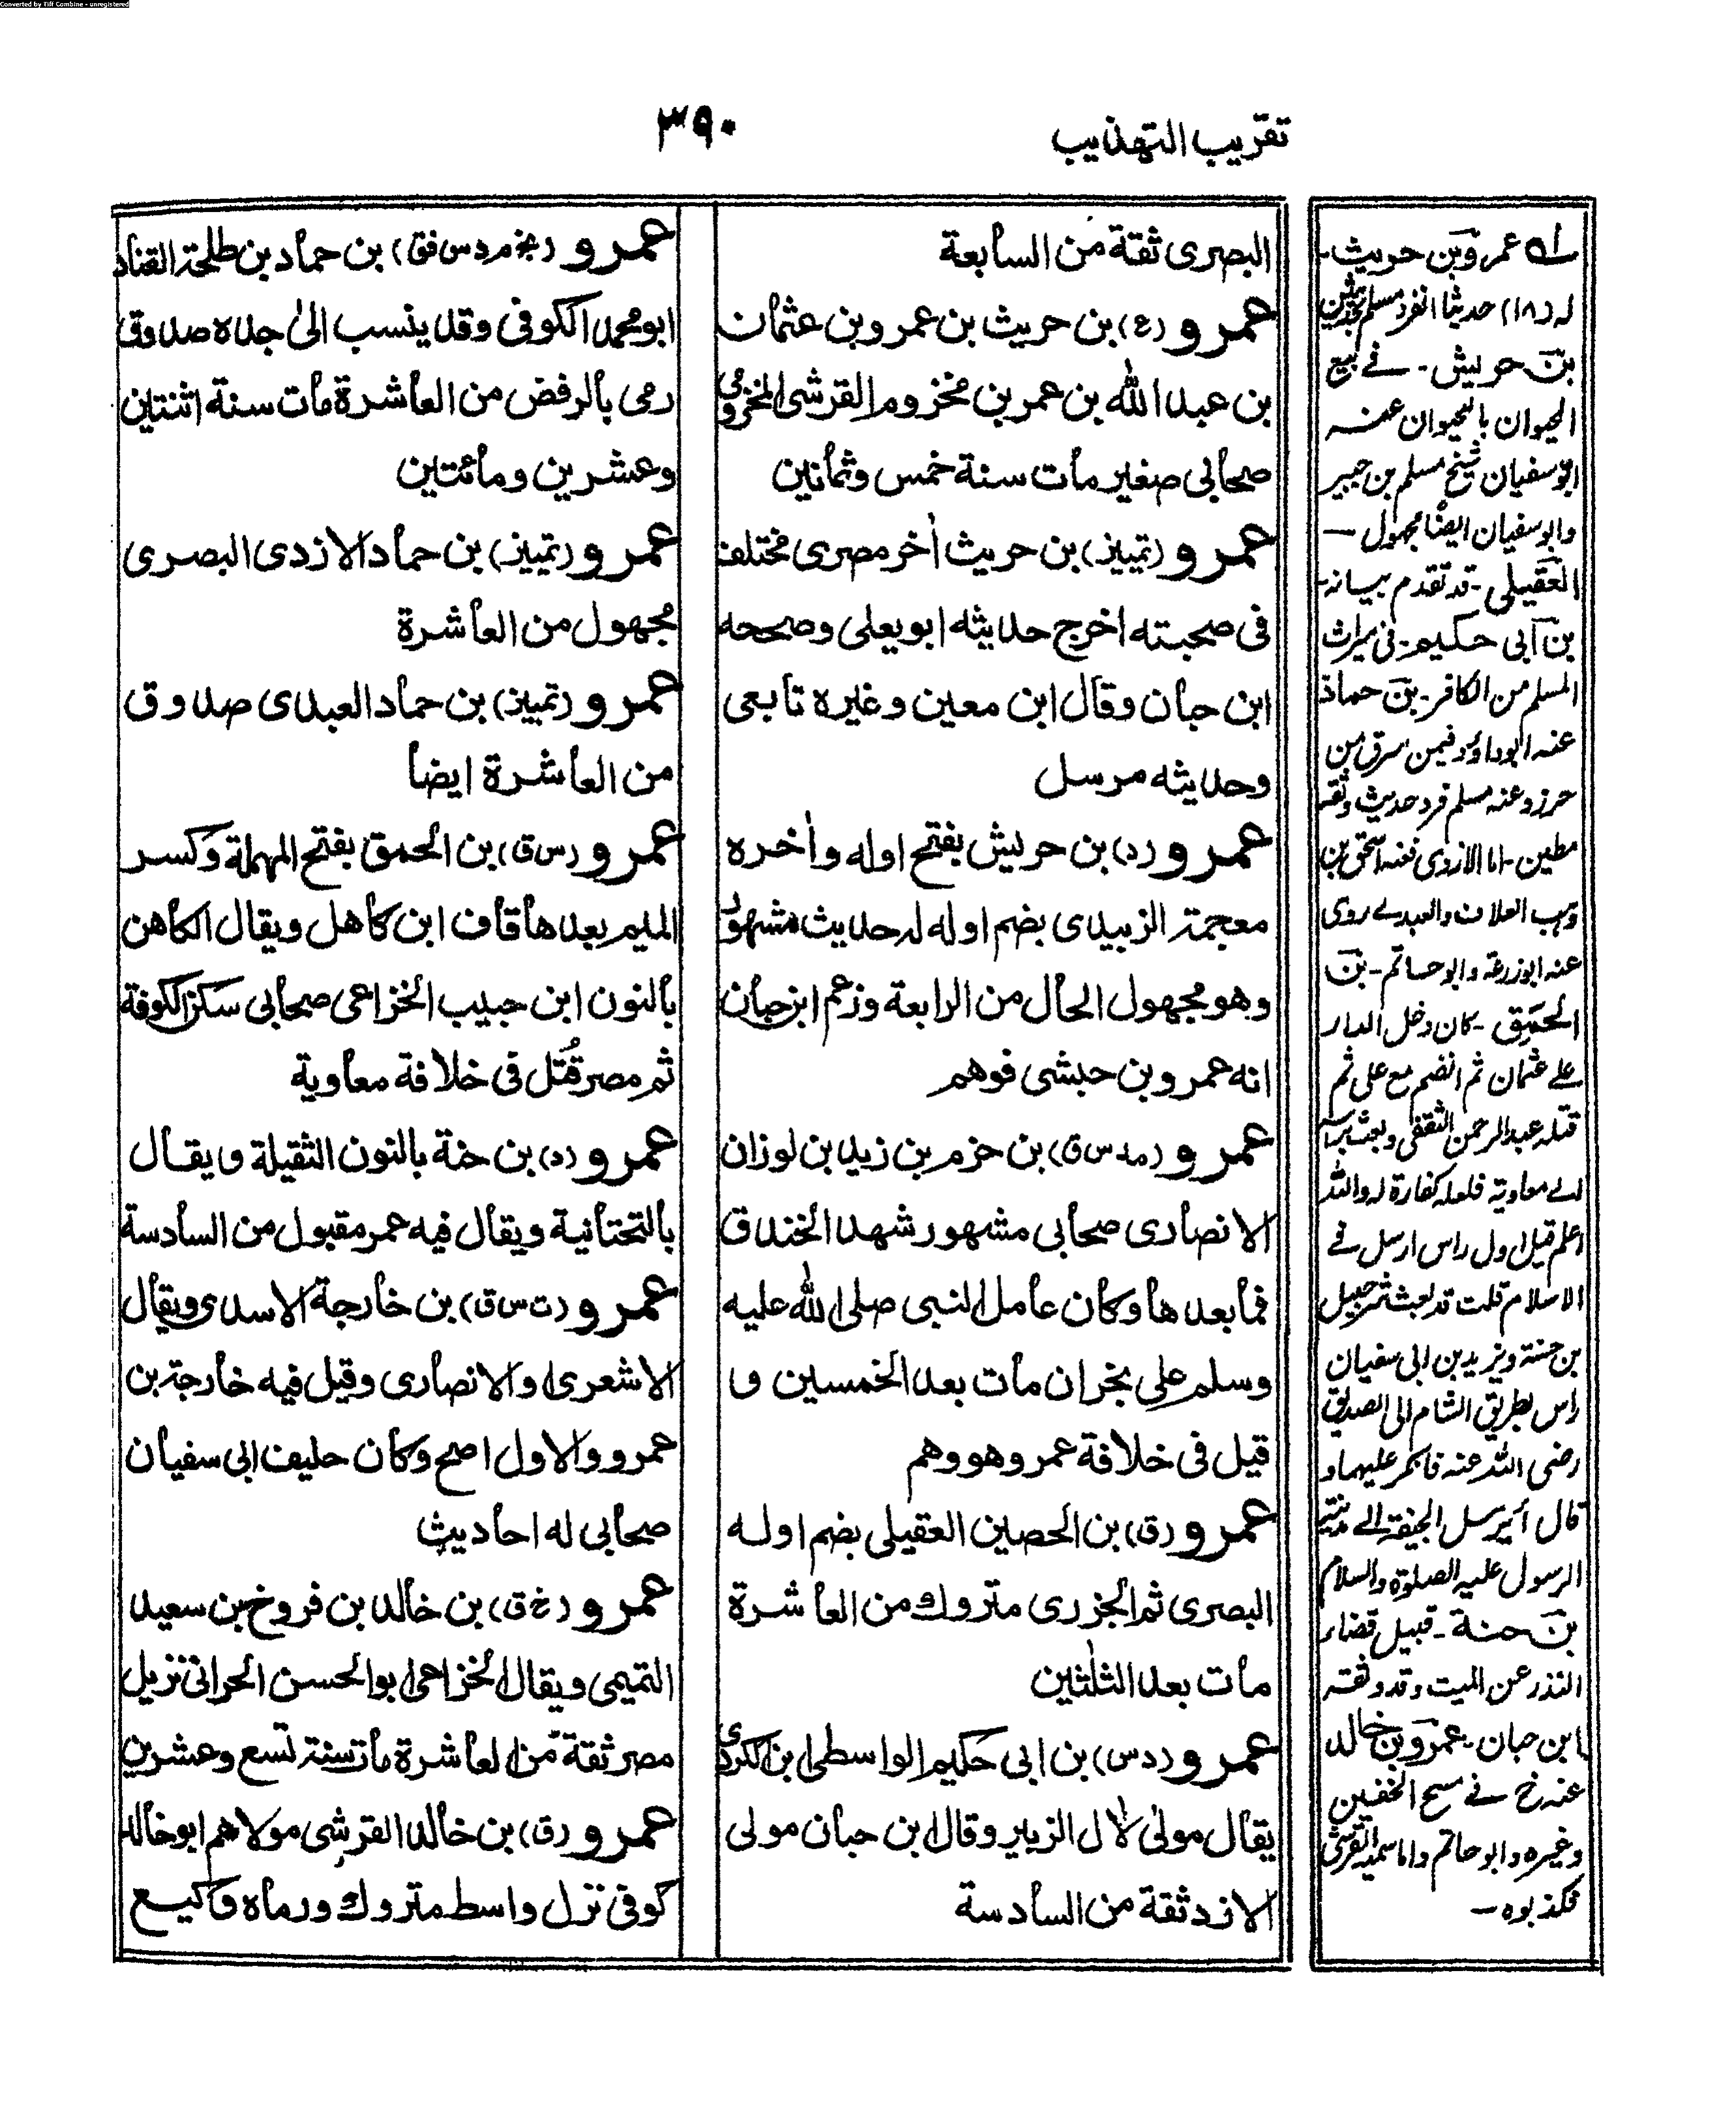 Converted by Tiff Combine - unregistered
تقريب التهذيب
٣٩٠
البصرى ثقة من السابعة
عمرو (ع) بن حريث بن عمرو بن عثمان
بن عبد الله بن عمر بن مخزوم القرشى المخزومى
صحابى صغير مات سنة خمس وثمانين
عمرو (تمييز) بن حريث اٰخر مصرى مختلف
فى صحبته اخرج حديثه ابو يعلى وصححه
ابن حبان وقال ابن معين وغيره تابعى
وحديثه مرسل
عمرو (د) بن حريش بفتح اوله واٰخره
معجمة الزبيدى بضم اوله له حديث مشهور
وهو مجهول الحال من الرابعة وزعم ابن حبان
انه عمرو بن حبشى فوهم
عمرو (مد س ق) بن حزم بن زيد بن لوزان
الانصارى صحابى مشهور شهد الخندق
فما بعدها وكان عامل النبى صلى الله عليه
وسلم على نجران مات بعد الخمسين و
قيل فى خلافة عمر وهو وهم
عمرو (ق) بن الحصين العقيلى بضم اوله
البصرى ثم الجزرى متروك من العاشرة
مات بعد الثلٰثين
عمرو (د س) بن ابى حكيم الواسطى ابن الكردى
يقال مولىٰ لاٰل الزبير وقال ابن حبان مولى
الازد ثقة من السادسة
عمرو (بخ م د س فق) بن حماد بن طلحة القناد
ابو محمد الكوفى وقد ينسب الىٰ جده صدوق
رمى بالرفض من العاشرة مات سنة اثنتين
وعشرين ومائتين
عمرو (تمييز) بن حماد الازدى البصرى
مجهول من العاشرة
عمرو (تمييز) بن حماد العبدى صدوق
من العاشرة ايضا
عمرو (س ق) بن الحمق بفتح المهملة وكسر
الميم بعدها قاف ابن كاهل ويقال الكاهن
بالنون ابن حبيب الخزاعى صحابى سكن الكوفة
ثم مصر قُتل فى خلافة معاوية
عمرو (د) بن حنة بالنون الثقيلة ويقال
بالتحتانية ويقال فيه عمر مقبول من السادسة
عمرو (ت س ق) بن خارجة الاسدى ويقال
الاشعرى والانصارى وقيل فيه خارجة بن
عمرو والاول اصح وكان حليف ابى سفيان
صحابى له احاديث
عمرو (خ ق) بن خالد بن فروخ بن سعيد
التميمى ويقال الخزاعى ابو الحسن الحرانى نزيل
مصر ثقة من العاشرة مات سنة تسع وعشرين
عمرو (ق) بن خالد القرشى مولاهم ابو خالد
كوفى نزل واسط متروك ورماه وكيع
له عمرو بن حريث -
له (١٨) حديثا انفرد مسلم بحديثين
بن حريش - فے بيع
الحيوان بالحيوان عنه
ابو سفيان شيخ مسلم بن جبير
وابو سفيان ايضًا مجهول —
العقيلى - قد تقدم بيانه -
بن ابى حكيم - فى ميراث
المسلم من الكافر - بن حماد
عنه ابو داؤد فيمن سرق من
حرز وعنه مسلم فرد حديث وثقه
مطين - اما الازدى فعنه اسحق بن
وهب العلاف والعبدے روى
عنه ابو زرعة وابو حاتم - بن
الحمق - كان دخل الدار
علے عثمان ثم انضم مع على ثم
قتله عبد الرحمن الثقفى وبعث براسه
الے معاوية فلعله كفارة له والله
اعلم قيل اول راس ارسل فے
الاسلام قلت قد بعث شرحبيل
بن حسنة ويزيد بن ابى سفيان
راس بطريق الشام الى الصديق
رضى الله عنه فانكر عليهما و
قال أيرسل الجيفة الے مدينة
الرسول عليه الصلوة والسلام
بن حنة - قبيل قضاء
النذر عن الميت وقد وثقه
ابن حبان - عمرو بن خالد
عنه خ فے مسح الخفين
وغيره وابو حاتم واما سميه القرشى
فكذبوه —